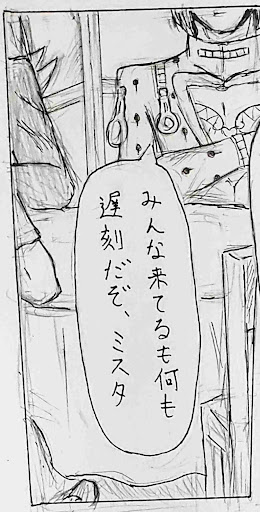 みんな来てるも何も
遅刻だぞ、ミスタ